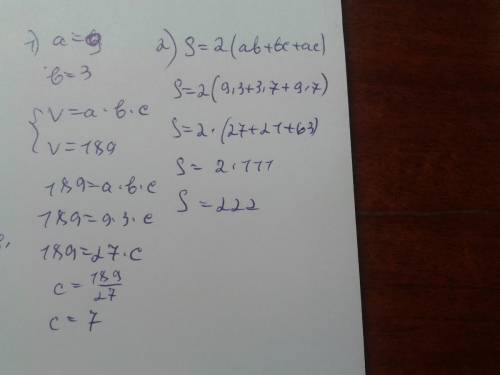 1) a = 9
b = 3
V = a · b · c
V = 189
189 = a · b · c
189 = 9 · 3 · c
189 = 27 · c
c = 189/27
c = 7
2) S = 2(ab + bc + ac)
S = 2(9 · 3 + 3 · 7 + 9 · 7)
S = 2 · (27 + 21 + 63)
S = 2 · 111
S = 222